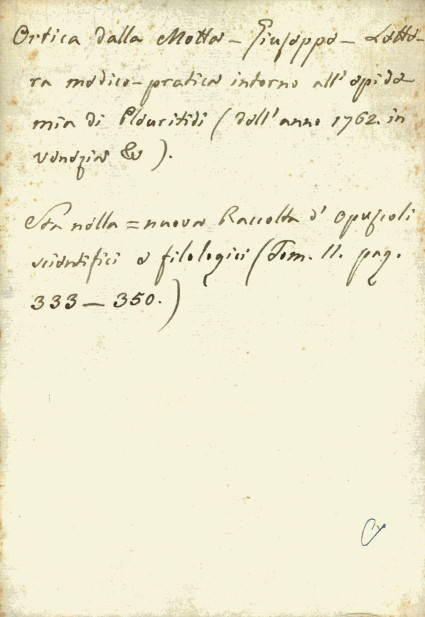 Ortica dalla Motta - Giuseppe - Lette-
ra medico-pratica intorno all'epide
mia di Pleuritidi (dell'anno 1762. in
Venezia &c).
Sta nella = nuova Raccolta d'Opuscoli
scientifici e filologici (Tom. II. pag.
333 - 350.)